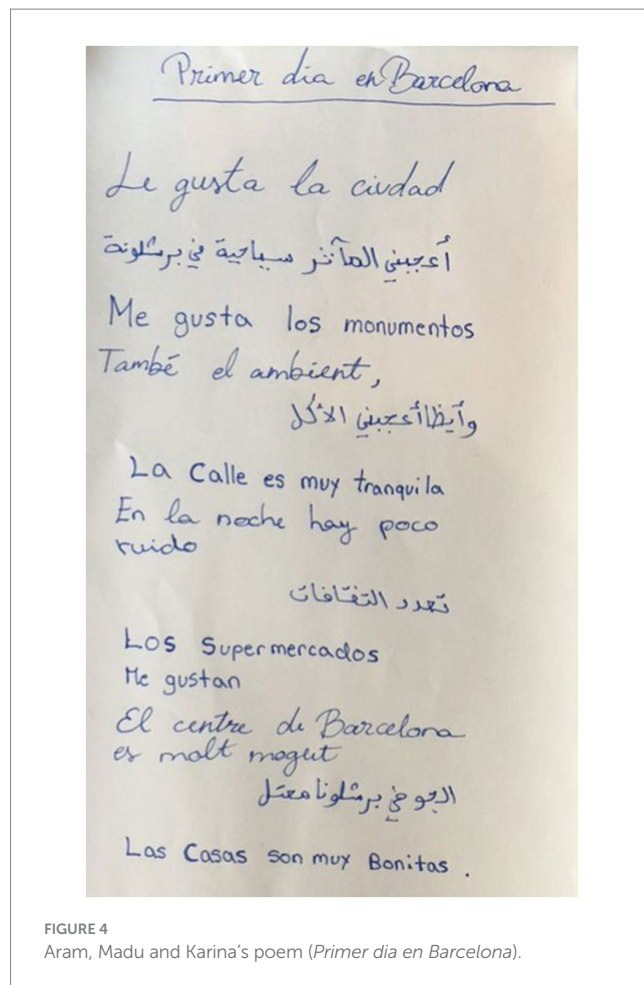 Primer dia en Barcelona
Le gusta la ciudad
أعجبني المآثر سياحية في برشلونة
Me gusta los monumentos
També el ambient,
وأيظا أعجبني الأكل
La Calle es muy tranquila
En la noche hay poco
ruido
تعدد التقافات
Los Supermercados
Me gustan
El centre de Barcelona
es molt mogut
الجو في برشلونا معتل
Las Casas son muy Bonitas .
FIGURE 4
Aram, Madu and Karina's poem (Primer dia en Barcelona).